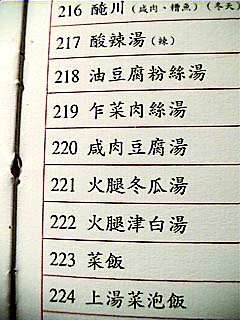 216 醃川(咸肉、糟魚)(冬天)
217 酸辣湯(辣)
218 油豆腐粉絲湯
219 乍菜肉絲湯
220 咸肉豆腐湯
221 火腿冬瓜湯
222 火腿津白湯
223 菜飯
224 上湯菜泡飯